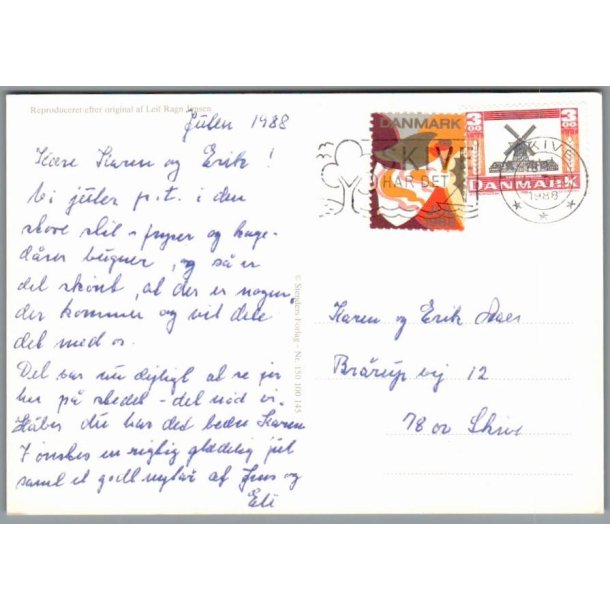 Reproduceret efter original af Leif Ragn Jensen
Julen 1988
Kære Karen og Erik!
Vi juler p.t. i den
store stil - fryser og kage-
dåser bugner, og så er
det skønt, at der er nogen,
der kommer og vil dele
det med os.
Det var nu dejligt at se jer
her på stedet - det nød vi.
Håber du har det bedre Karen
I ønskes en rigtig glædelig jul
samt et godt nytår af Jens og
Eli
© Stenders Forlag - Nr. 150 100 143
DANMARK
SKIVE
HAR DET
1988
3.00
DANMARK
SKIVE
1988
Karen og Erik
Brårup vej 12
7800 Skive